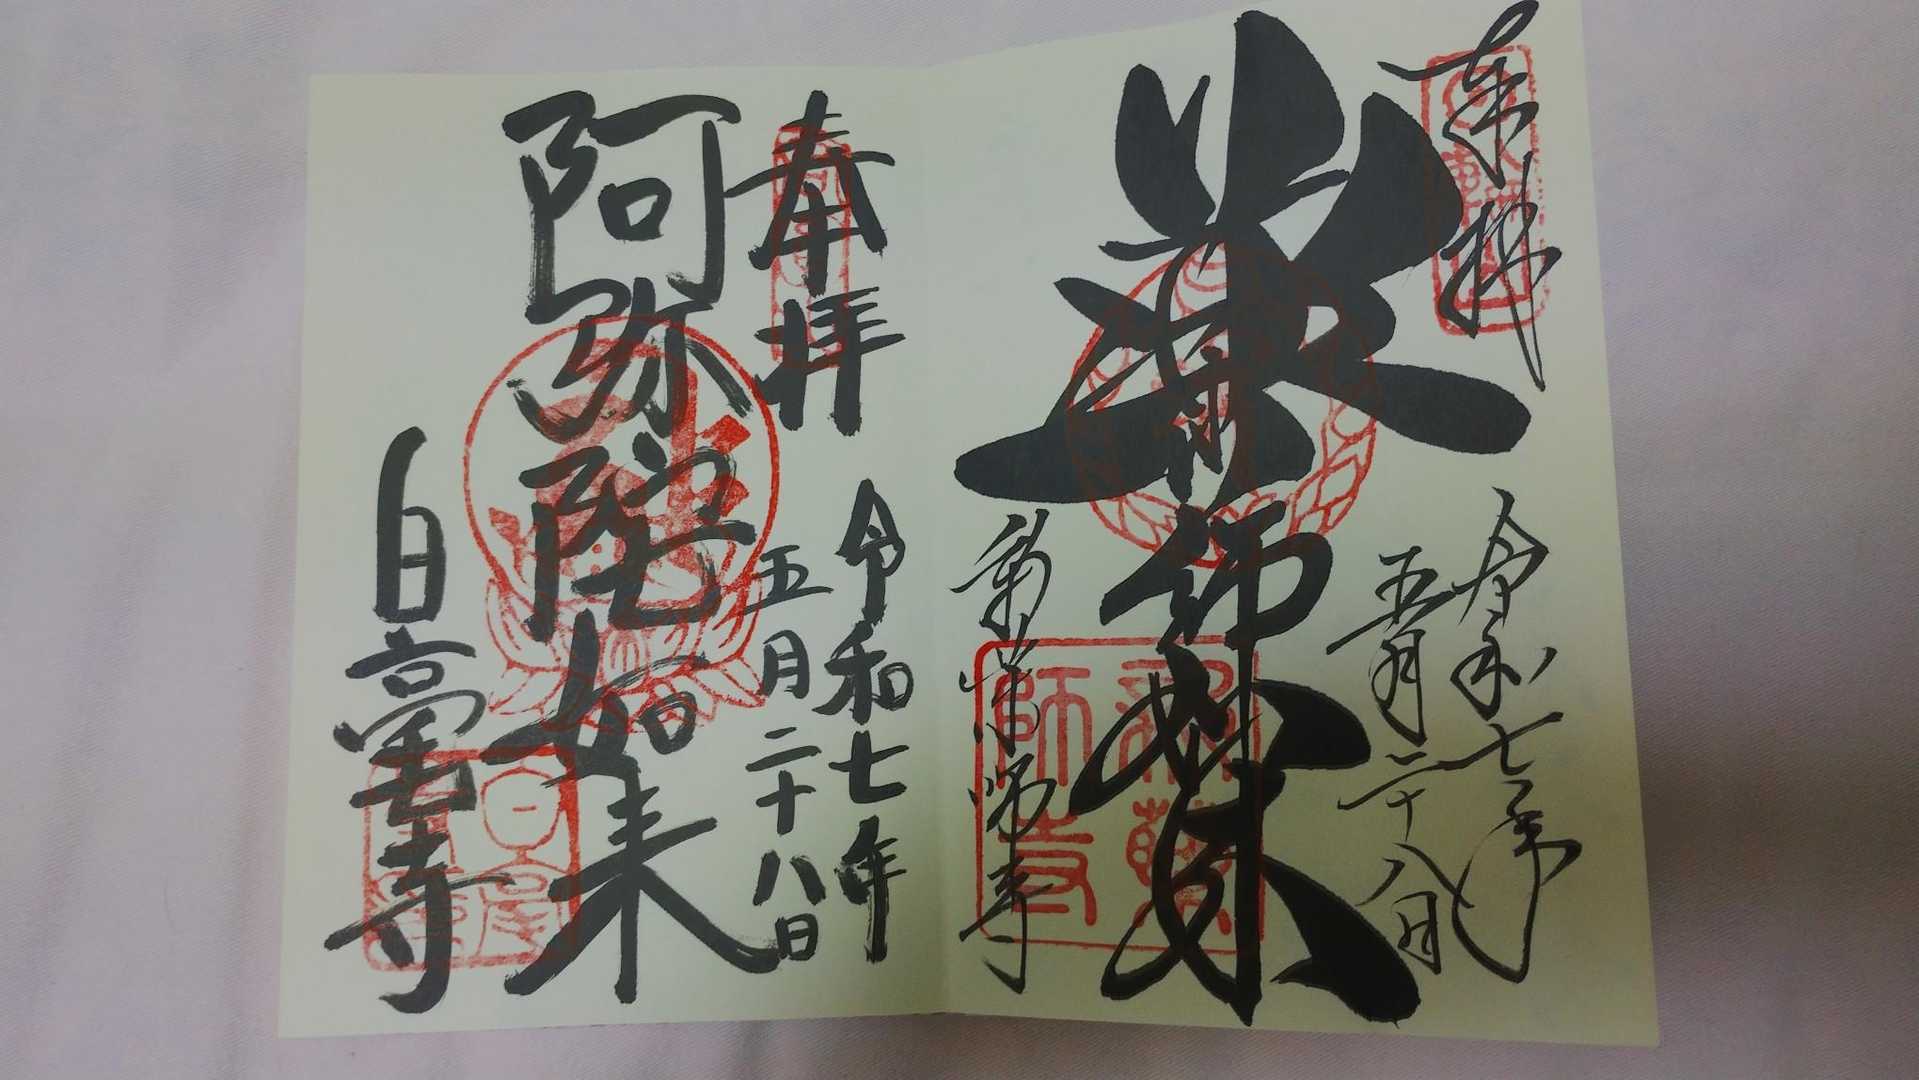 奉拝
令和七年
五月二十八日
薬師如来
新薬師寺
新薬師寺
奉拝
令和七年
五月二十八日
阿弥陀如来
白毫寺